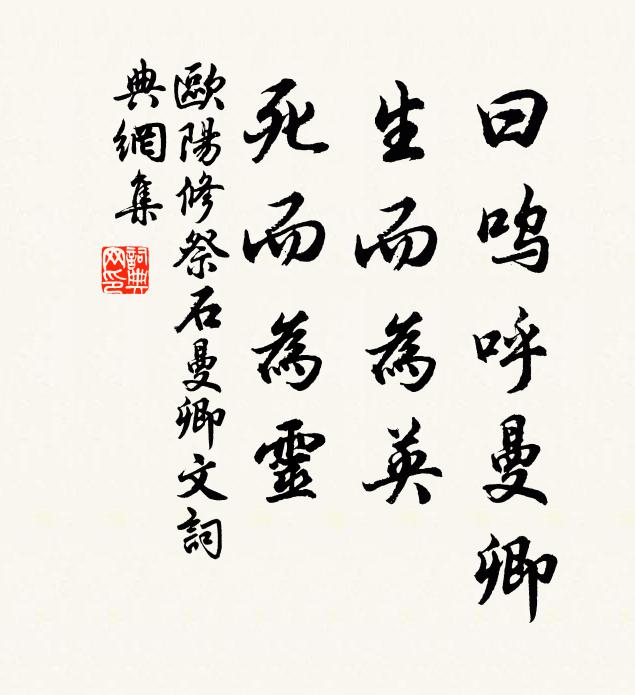 曰嗚呼曼卿
生而為英
死而為靈
歐陽修祭石曼卿文詞
典網集
詞典
网印